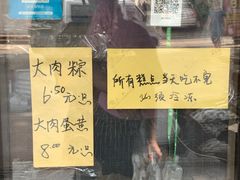 大肉粽
6.50元/只
大肉蛋黄
8.00元/只
所有糕点当天吃不完
必须冷冻